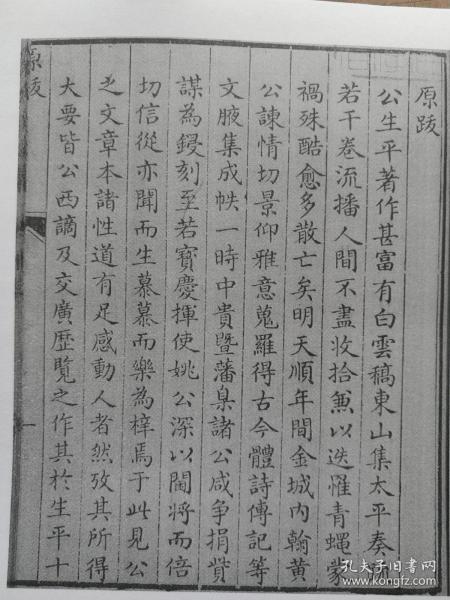 原跋
公生平著作甚富有白雲稿東山集太平奏
若干卷流播人間不盡收拾兼以迭罹青蠅蒙
禍殊酷愈多散亡矣明天順年間金城內翰黄
公諫情切景仰雅意蒐羅得古今體詩傳記等
文腋集成帙一時中貴暨藩臬諸公咸争捐貲
謀為鋟刻至若寳慶揮使姚公深以閫將而倍
切信從亦聞而生慕慕而樂為梓焉于此見公
之文章本諸性道有足感動人者然攷其所得
大要皆公西謫及交廣歷覽之作其於生平十
原跋
一
孔夫子旧书网